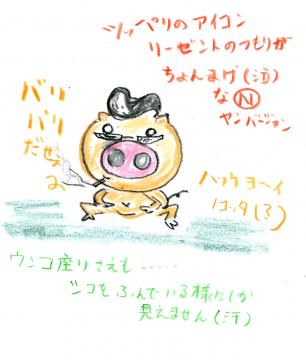 ツッパリのアイコン
リーゼントのつもりが
ちょんまげ(泣)
な Ⓝ
ヤンバージョン
バリ
バリ
だぜぇ
ぉ
ハッケヨーイ
ノコッタ(ろ)
ウンコ座りさえも・・・・・
シコをふんでいる様にしか
見えません(汗)